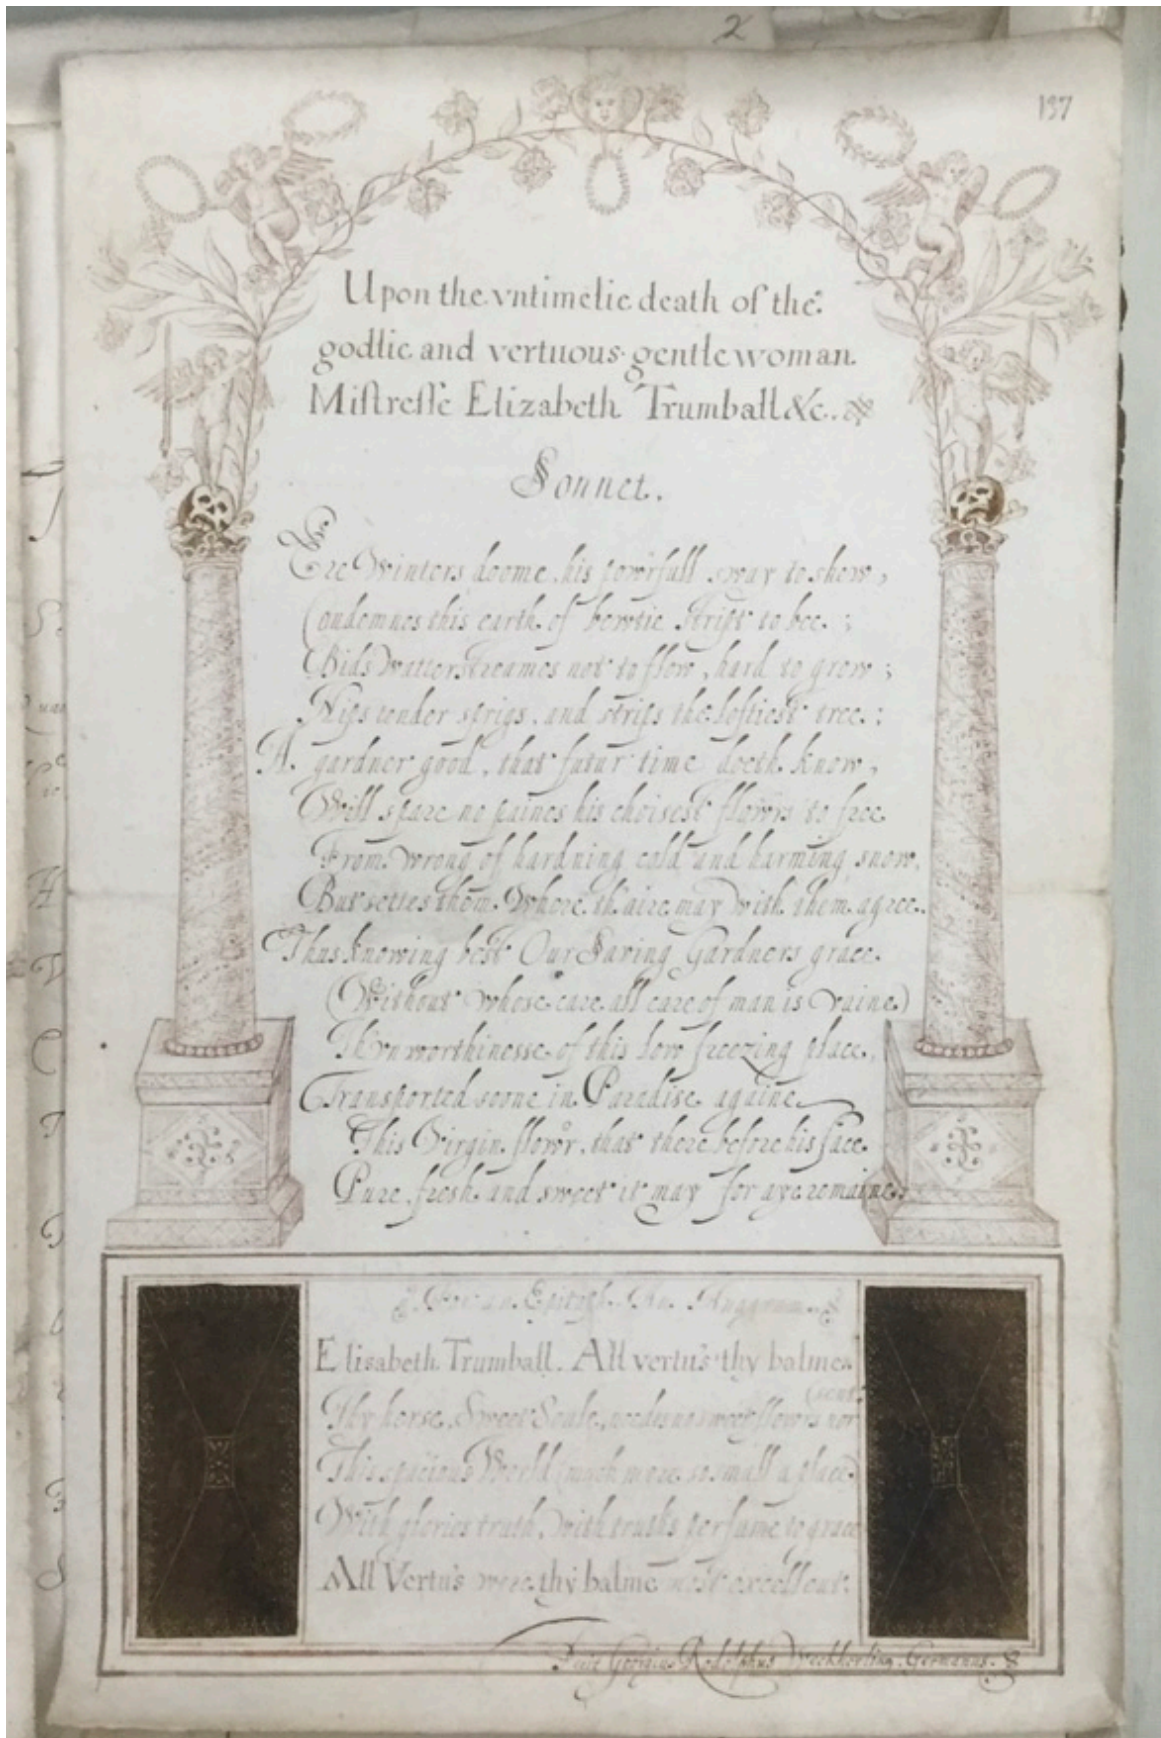 2
137
Upon the vntimelie death of the
godlie and vertuous gentlewoman
Mistresse Elizabeth Trumball &c.
Sonnet.
Ere Winters doome, his powrfull sway to show,
Condemnes this earth of bewtie stript to bee;
Bids watterstreames not to flow, hard to grow;
Nips tender sprigs, and strips the loftiest tree:
A gardner good, that futur time doeth know,
Will spare no paines his choisest flowrs to free
From wrong of hardning cold and harming snow,
But settes them Where th'aire may with them agree.
Thus knowing best Our Saving Gardners grace
(Without whose care all care of man is vaine)
Th'vnworthinesse of this low freezing place,
Transported soone in Paradise againe
This Virgin flowr, that there before his face
Pure, fresh, and sweet it may for aye remaine.
For an Epitaph. An Anagram.
Elisabeth Trumball. All vertu's thy balme.
(sent
Thy herse, Sweet Soule, needes no sweet flowrs nor
This spacious World (much more so small a place)
With glories truth, with truths perfume to grace
All Vertu's were thy balme most excellent.
Georgius Rodolphus Weckherlin Germanus.